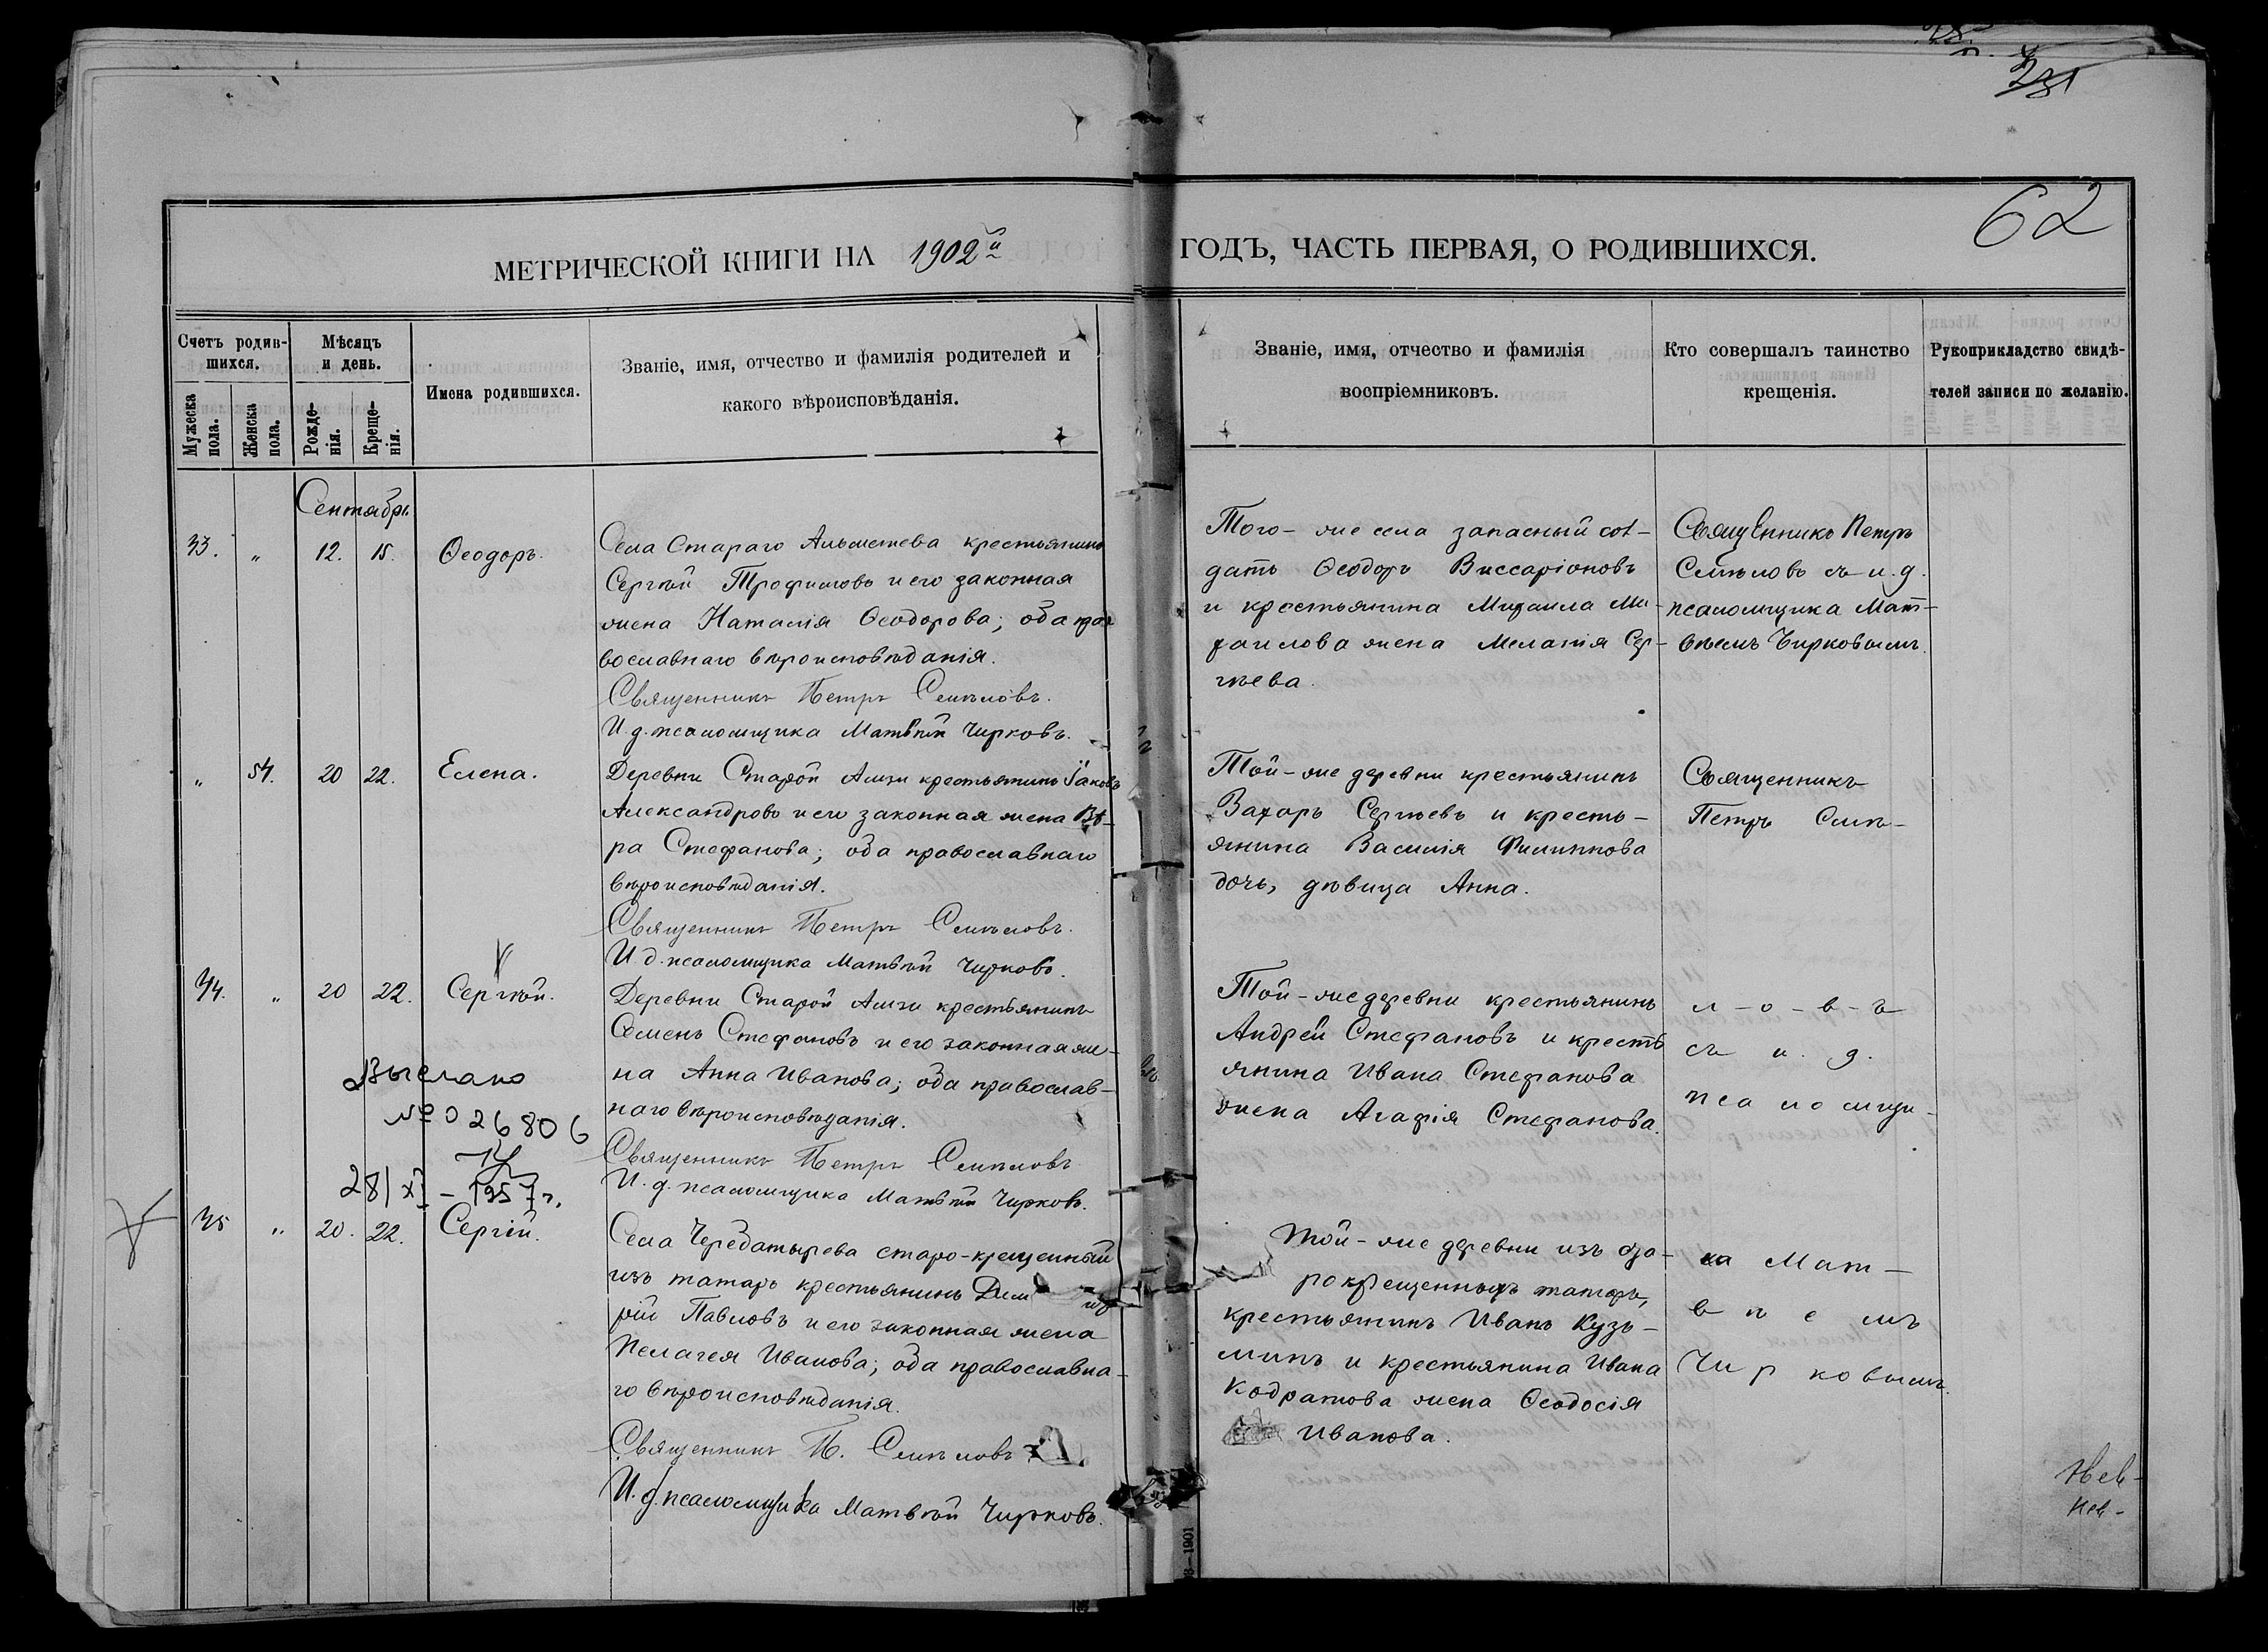 62
МЕТРИЧЕСКОЙ КНИГИ НА 1902й ГОДЪ, ЧАСТЬ ПЕРВАЯ, О РОДИВШИХСЯ.
Счетъ родив-
шихся.
Мужеска
пола.
Женска
пола.
Мѣсяцъ
и день.
Рожде-
нія.
Креще-
нія.
Имена родившихся.
Званіе, имя, отчество и фамилія родителей и
какого вѣроисповѣданія.
Званіе, имя, отчество и фамилія
воспріемниковъ.
Кто совершалъ таинство
крещенія.
Рукоприкладство свидѣ-
телей записи по желанію.
Сентябрь
33. " 12. 15. Ѳеодоръ.
Села Стараго Альметева крестьянинъ
Сергѣй Трофимовъ и его законная
жена Наталія Ѳеодорова; оба пра-
вославнаго вѣроисповѣданія.
Священникъ Петръ Смѣловъ.
И.д. псаломщика Матвѣй Чирковъ.
Того-же села запасный сол-
датъ Ѳеодоръ Виссаріоновъ
и крестьянина Михаила Ми-
хаилова жена Меланія Сер-
гѣева.
Священникъ Петръ
Смѣловъ съ и.д.
псаломщика Мат-
вѣемъ Чирковымъ.
" 54. 20 22. Елена.
Деревни Старой Амзи крестьянинъ Іаковъ
Александровъ и его законная жена Вѣ-
ра Стефанова; оба православнаго
вѣроисповѣданія.
Священникъ Петръ Смѣловъ.
И.д. псаломщика Матвѣй Чирковъ.
Той-же деревни крестьянинъ
Захаръ Сергѣевъ и кресть-
янина Василія Филиппова
дочь, дѣвица Анна.
Священникъ
Петръ Смѣ-
34. " 20 22. Сергѣй.
Деревни Старой Амзи крестьянинъ
Семенъ Стефановъ и его законная же-
на Анна Иванова; оба православ-
наго вѣроисповѣданія.
Священникъ Петръ Смѣловъ
И.д. псаломщика Матвѣй Чирковъ.
Выслано
№ 026806
28/XI – 1957 г.
Той-же деревни крестьянинъ
Андрей Стефановъ и кресть
янина Ивана Стефанова
жена Агафія Стефанова.
л-о-в-ъ
съ и. д.
псаломщи-
35 " 20. 22. Сергій.
Села Чередатырева старо-крещенный
изъ татаръ крестьянинъ Дим
рій Павловъ и его законная жена
Пелагея Иванова; оба православна-
го вѣроисповѣданія.
Священникъ П. Смѣловъ
И.д. псаломщика Матвѣй Чирковъ.
Той-же деревни изъ ста-
рокрещенныхъ татаръ,
крестьянинъ Иванъ Кузь-
минъ и крестьянина Ивана
Кодратова жена Ѳеодосія
Иванова.
ка Мат-
вѣемъ
Чирковымъ.